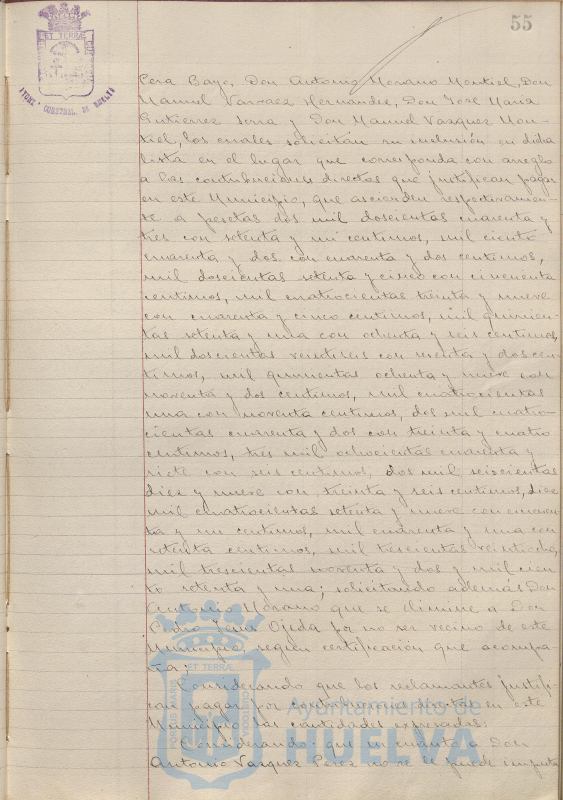 55
AYUNT. CONSTNAL. DE HUELVA
Cera Bayo, Don Antonio Morano Montiel, Don
Manuel Narvaez Hernandez, Don José Maria
Gutierrez Soria y Don Manuel Vazquez Mon-
tiel, los cuales solicitan su inclusión en dicha
lista en el lugar que corresponda con arreglo
a las contribuciones directas que justifican pagar
en este Municipio, que ascienden respectivamen-
te a pesetas dos mil doscientas cuarenta y
tres con setenta y un centimos, mil ciento
cuarenta y dos con cuarenta y dos centimos,
mil doscientas setenta y cinco con cincuenta
centimos, mil cuatrocientas treinta y nueve
con cuarenta y cinco centimos, mil quinien-
tas setenta y una con ochenta y seis centimos,
mil doscientas veintitres con y dos cen-
timos, mil quinientas ochenta y nueve con
noventa y dos centimos, mil cuatrocientas
una con noventa centimos, dos mil cuatro-
cientas cuarenta y dos con treinta y cuatro
centimos, tres mil ochocientas cuarenta y
siete con seis centimos, dos mil seiscientas
diez y nueve con treinta y seis centimos, diez
mil cuatrocientas setenta y nueve con cuaren-
ta y un centimos, mil cuarenta y una con
setenta centimos, mil trescientas veintiocho,
mil trescientas noventa y dos y mil cien-
to setenta y una; solicitando además Don
Antonio Morano que se elimine a Don
Pedro Ojeda por no ser vecino de este
Municipio, según certificación que acompa-
ña;
Considerando que los reclamantes justifi-
can pagar por contribuciones directas en este
Municipio las cantidades expresadas:
Considerando que en cuanto a Don
Antonio Vazquez Perez no se le puede imputa
Ayuntamiento de
HUELVA